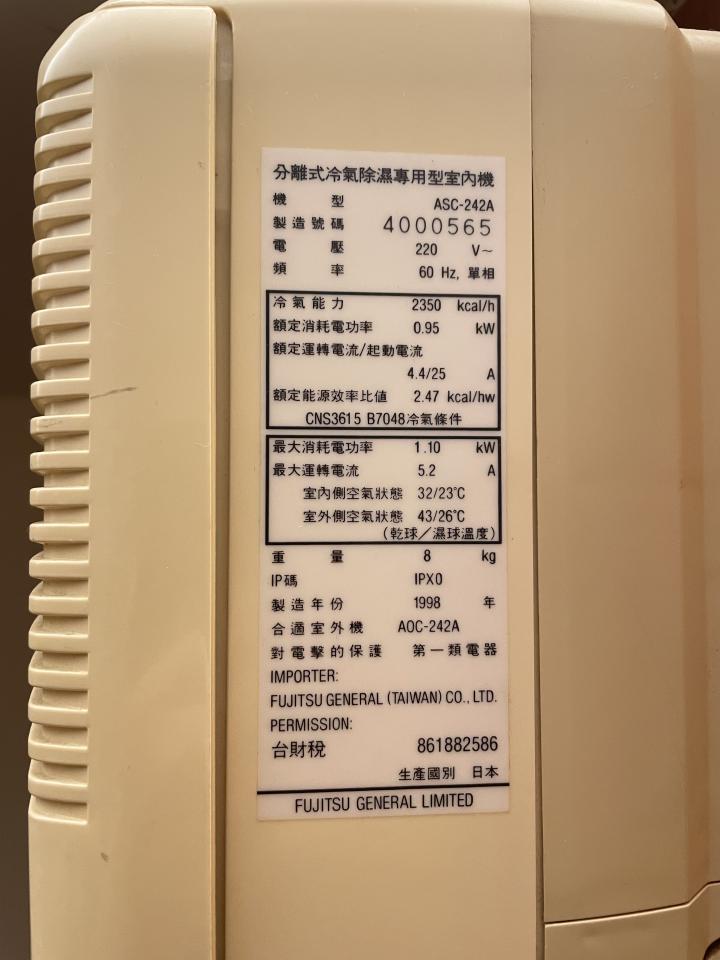 分離式冷氣除濕專用型室內機
機型 ASC-242A
製造號碼 4000565
電壓 220 V~
頻率 60 Hz, 單相
冷氣能力 2350 kcal/h
額定消耗電功率 0.95 kW
額定運轉電流/起動電流
4.4/25 A
額定能源效率比值 2.47 kcal/hw
CNS3615 B7048冷氣條件
最大消耗電功率 1.10 kW
最大運轉電流 5.2 A
室內側空氣狀態 32/23℃
室外側空氣狀態 43/26℃
(乾球/濕球溫度)
重量 8 kg
IP碼 IPX0
製造年份 1998 年
合適室外機 AOC-242A
對電擊的保護 第一類電器
IMPORTER:
FUJITSU GENERAL (TAIWAN) CO., LTD.
PERMISSION:
台財稅 861882586
生產國別 日本
FUJITSU GENERAL LIMITED